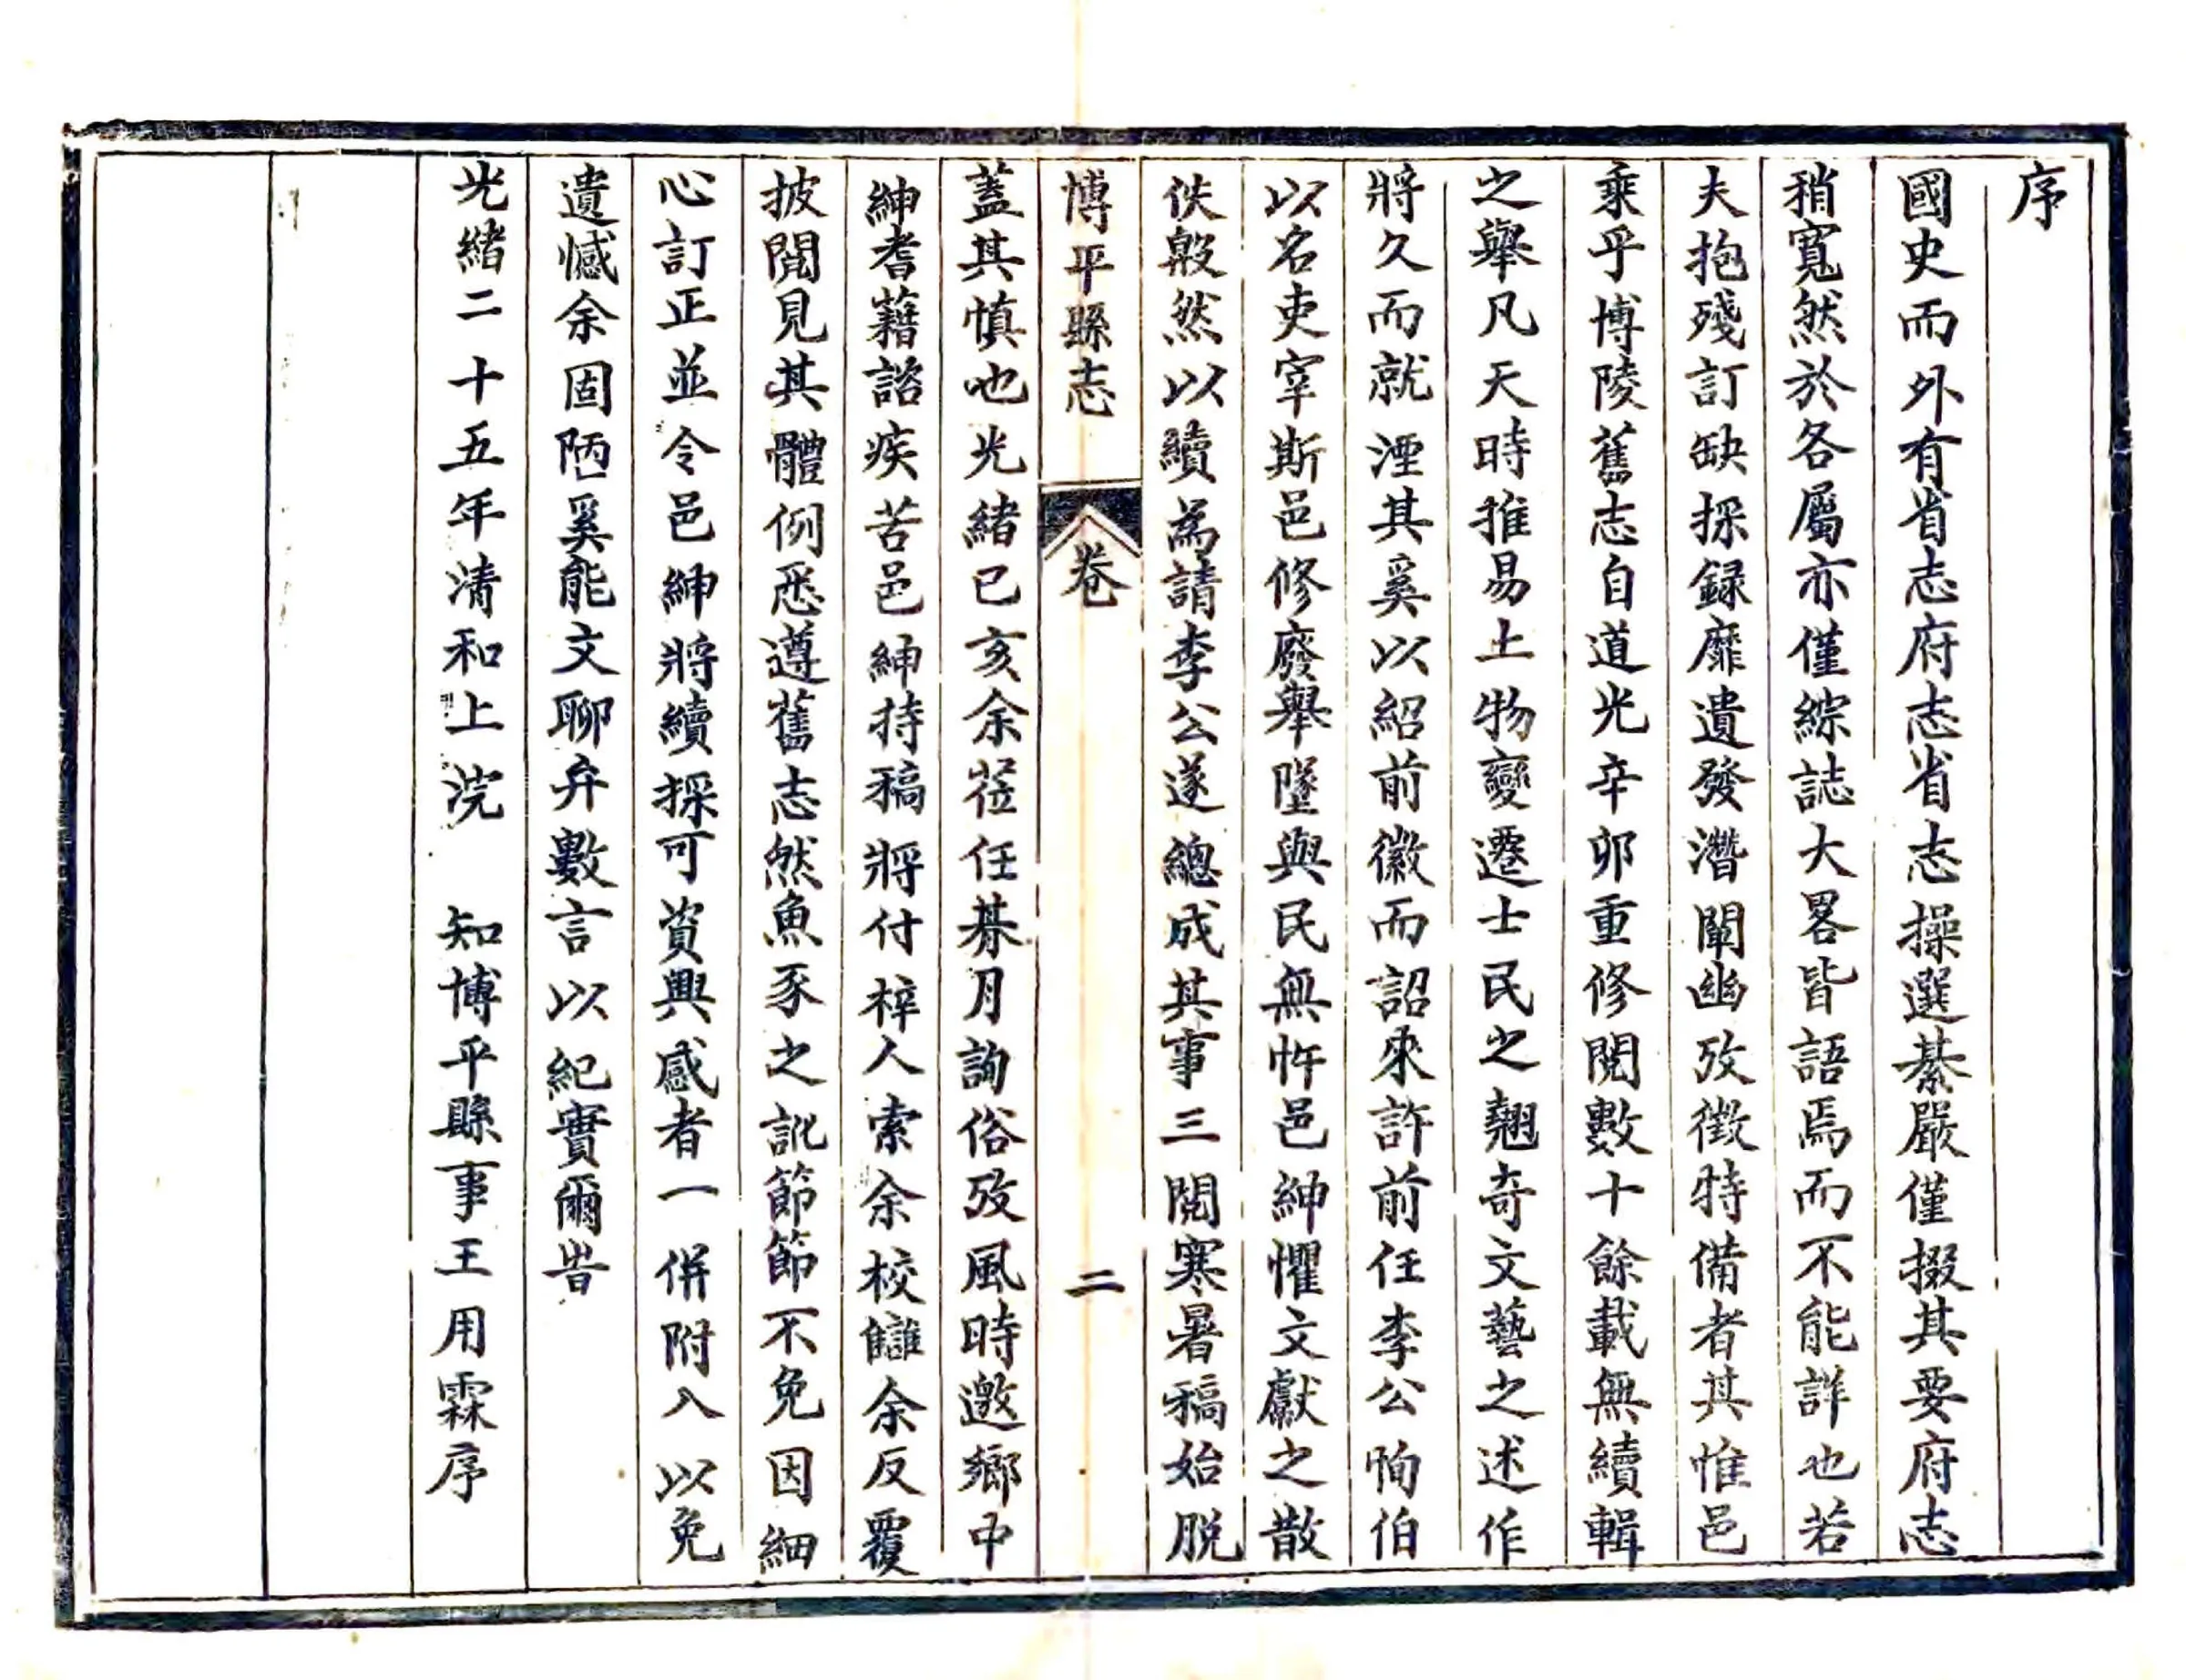 序
國史而外有省志府志省志操選綦嚴僅掇其要府志
稍寬然於各屬亦僅綜誌大畧皆語焉而不能詳也若
夫抱殘訂缺採録靡遺發潛闡幽攷徵特備者其惟邑
乘乎博陵舊志自道光辛卯重修閱數十餘載無續輯
之舉凡天時推易土物變遷士民之翹奇文藝之述作
將久而就湮其奚以紹前徽而詔來許前任李公恂伯
以名吏宰斯邑修廢舉墜與民無忤邑紳懼文獻之散
佚殷然以續為請李公遂總成其事三閱寒暑稿始脱
博平縣志 卷 二
蓋其慎也光緒已亥余蒞任朞月詢俗攷風時邀鄉中
紳耆藉諮疾苦邑紳持稿將付梓人索余校讎余反覆
披閱見其體例悉遵舊志然魚豕之訛節節不免因細
心訂正並令邑紳將續採可資興感者一併附入以免
遺憾余固陋奚能文聊弁數言以紀實爾旹
光緒二十五年清和上浣 知博平縣事王用霖序